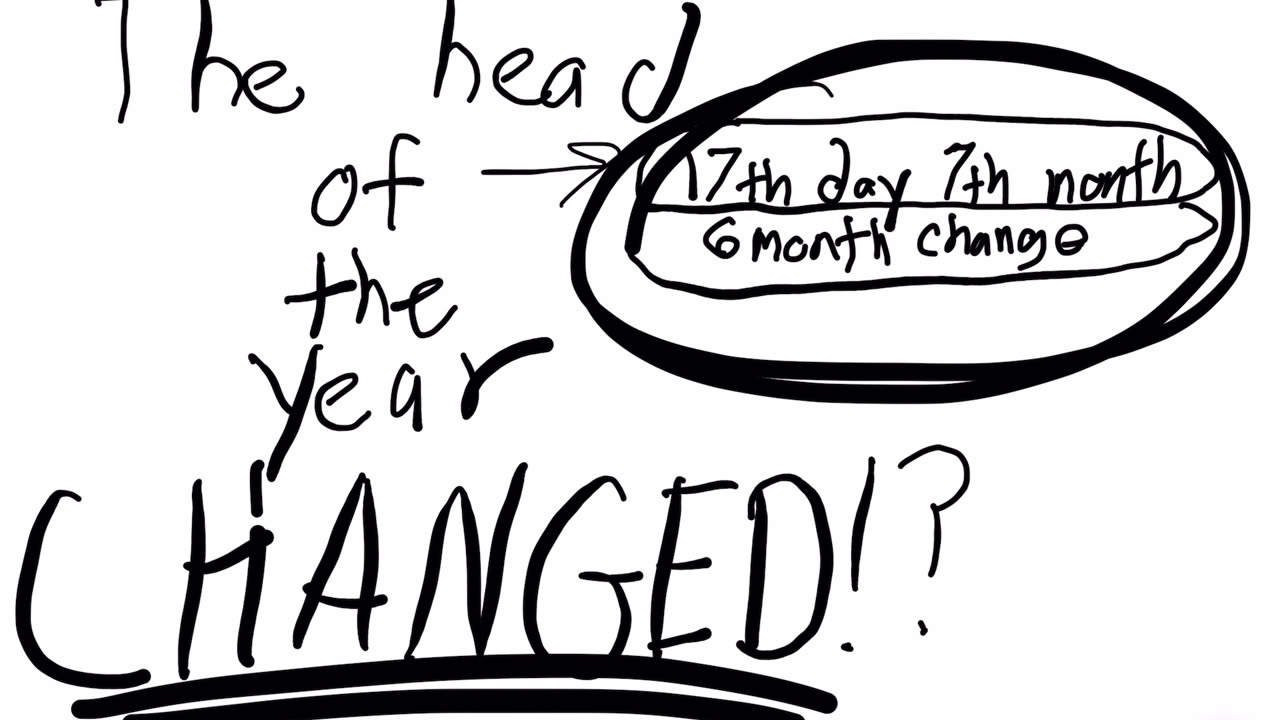 The head
of
the
year
CHANGED!?
17th day 7th month
6 month change